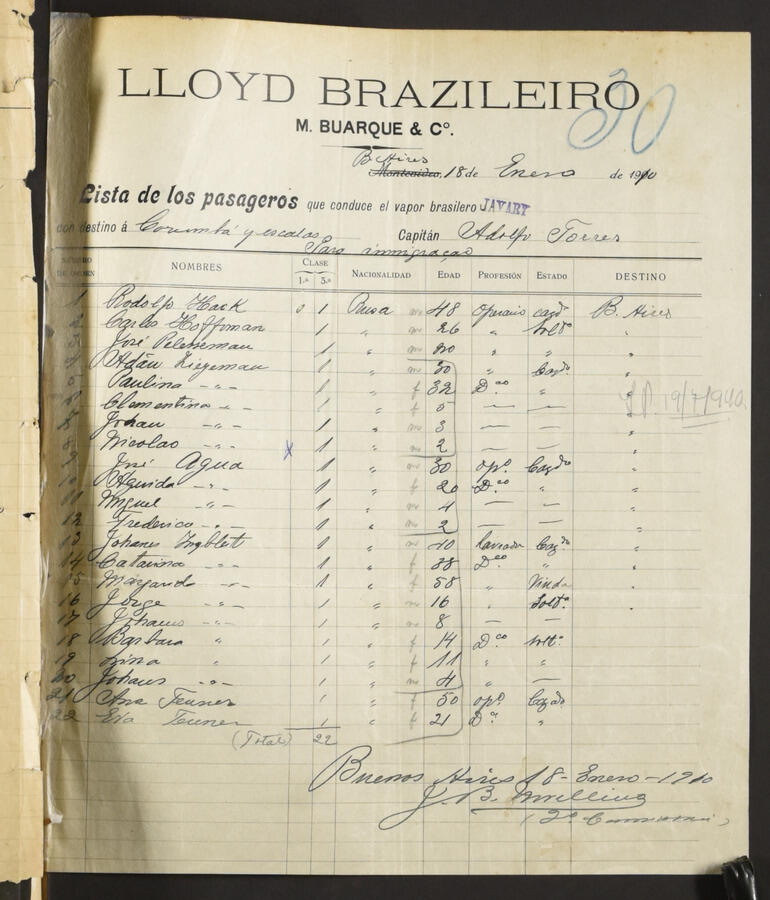 LLOYD BRAZILEIRO
30
M. BUARQUE & Cº.
B. Aires
Montevideo, 18 de Enero de 1910
Lista de los pasageros que conduce el vapor brasilero JAVARY
con destino á Corumbá y escalas Capitán Adolfo Torres
Para immigraçao
NÚMERO DE ORDEN NOMBRES CLASE 1.ª 3.ª NACIONALIDAD EDAD PROFESIÓN ESTADO DESTINO
1 Rodolfo Hack 0 1 Rusa m 48 operario cazdo B. Aires
2 Carlos Hoffman 1 " m 26 " soltº "
3 José 1 " m 20 " " "
4 Adán Ziegeman 1 " m 30 " Cazdo "
5 Paulina -"- 1 " f 32 Dca " "
6 Clementina -"- 1 " f 5 — — "
7 Johan -"- 1 " m 3 — — "
8 Nicolao -"- x 1 " m 2 — — "
9 José Agua 1 " m 30 opº Cazdo "
10 -"- 1 " f 20 Dca " "
11 Miguel -"- 1 " m 4 — — "
12 Frederico -"- 1 " m 2 — — "
13 Johanes 1 " m 40 Lavrador Cazdo "
14 Catarina -"- 1 " f 38 Dca " "
15 -"- 1 " f 58 " Viuda "
16 Jorge -"- 1 " m 16 " Soltº "
17 Johanes -"- 1 " m 8 — —
18 Barbara " 1 " f 14 Dca soltª
19 Lina " 1 " f 11 " "
20 Johans -"- 1 " m 4 — —
21 Ana 1 " f 50 opº Cazdo
22 Eva 1 " f 21 Dª "
(Total) 22
J.P. 19/7/940.
Buenos Aires 18 - Enero - 1910
J. B.